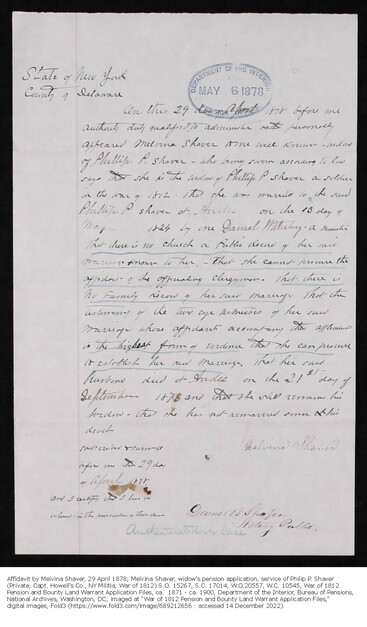 DEPARTMENT OF THE INTERIOR
MAY 6 1878
State of New York
County of Delaware
On this 29 day April 1878 before me
authority duly qualified to administer oaths personally
appeared Melvina Shaver to me well known widow
of Phillip P. Shaver who being sworn according to law
says that she is the widow of Phillip P Shaver a soldier
in the war of 1812 that she was married to the said
Phillip P Shaver at Andes on the 13 day of
May 1824 by one Daniel a minister
That there is no church or Public Record of her said
marriage known to her - That she cannot procure the
affidavit of the officiating Clergyman. That there is
No Family Record of her said marriage That the
testimony of the two eye witnesses of her said
marriage whose affidavits accompany this
is the highest form of evidence that she can procure
to establish her said marriage. That her said
Husband died at Andes on the 21st day of
September 187 and that she still remains his
widow - that she has not remarried since his
death
Subscribed & sworn to
before me this 29 day
of April 1878
and I certify that I have no
interest in the prosecution of this claim
Melvina Shaver
Notary Public
Affidavit by Melvina Shaver, 29 April 1878; Melvina Shaver, widow's pension application, service of Philip P. Shaver
(Private, Capt. Howell's Co., NY Militia, War of 1812) S.O. 15267, S.C. 17014, W.O.20557, W.C. 10545, War of 1812
Pension and Bounty Land Warrant Application Files, ca. 1871 - ca. 1900, Department of the Interior, Bureau of Pensions,
National Archives, Washington, DC; imaged at "War of 1812 Pension and Bounty Land Warrant Application Files,"
digital images, Fold3 (https://www.fold3.com/image/689212656 : accessed 14 December 2022).